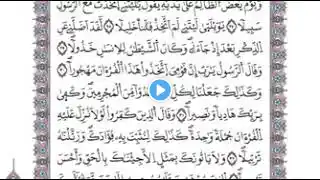 وَيَوْمَ يَعَضُّ الظَّالِمُ عَلَىٰ يَدَيْهِ يَقُولُ يَٰلَيْتَنِي اتَّخَذْتُ مَعَ الرَّسُولِ
سَبِيلًا يَٰوَيْلَتَىٰ لَيْتَنِي لَمْ أَتَّخِذْ فُلَانًا خَلِيلًا لَّقَدْ أَضَلَّنِي عَنِ
الذِّكْرِ بَعْدَ إِذْ جَاءَنِي وَكَانَ الشَّيْطَٰنُ لِلْإِنسَٰنِ خَذُولًا
وَقَالَ الرَّسُولُ يَٰرَبِّ إِنَّ قَوْمِي اتَّخَذُوا هَٰذَا الْقُرْءَانَ مَهْجُورًا
وَكَذَٰلِكَ جَعَلْنَا لِكُلِّ عَدُوًّا مِّنَ الْمُجْرِمِينَ وَكَفَىٰ
بِرَبِّكَ هَادِيًا وَنَصِيرًا وَقَالَ الَّذِينَ كَفَرُوا لَوْلَا نُزِّلَ عَلَيْهِ
الْقُرْءَانُ جُمْلَةً وَٰحِدَةً كَذَٰلِكَ لِنُثَبِّتَ بِهِ فُؤَادَكَ وَرَتَّلْنَٰهُ
تَرْتِيلًا وَلَا يَأْتُونَكَ بِمَثَلٍ إِلَّا جِئْنَٰكَ بِالْحَقِّ وَأَحْسَنَ